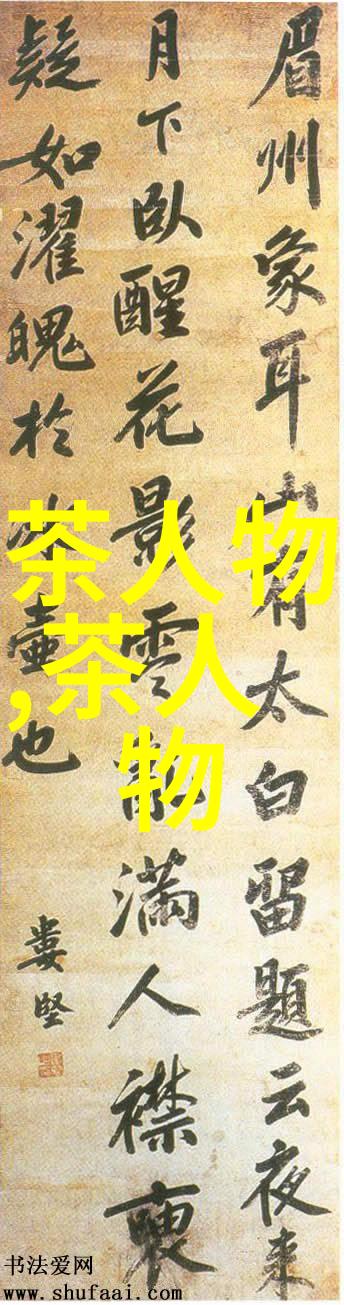 眉州象耳山有太白留題云夜來
月下臥醒花影雲亂滿人襟
疑如濯魄於冰壺也
婁堅
茶人物
,茶人
物
书法爱网
www.shufaai.com